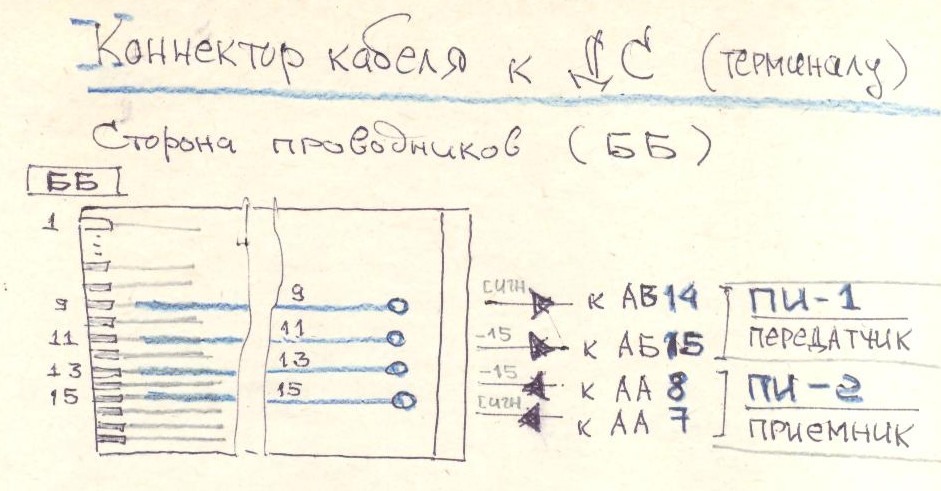 Коннектор кабеля к ДС (терминалу)
Сторона проводников (ББ)
ББ
1
9
11
13
15
9
11
13
15
СИГН к АБ14
-15 к АБ15
-15 к АА 8
СИГН к АА 7
ПИ-1
ПЕРЕДАТЧИК
ПИ-2
ПРИЕМНИК